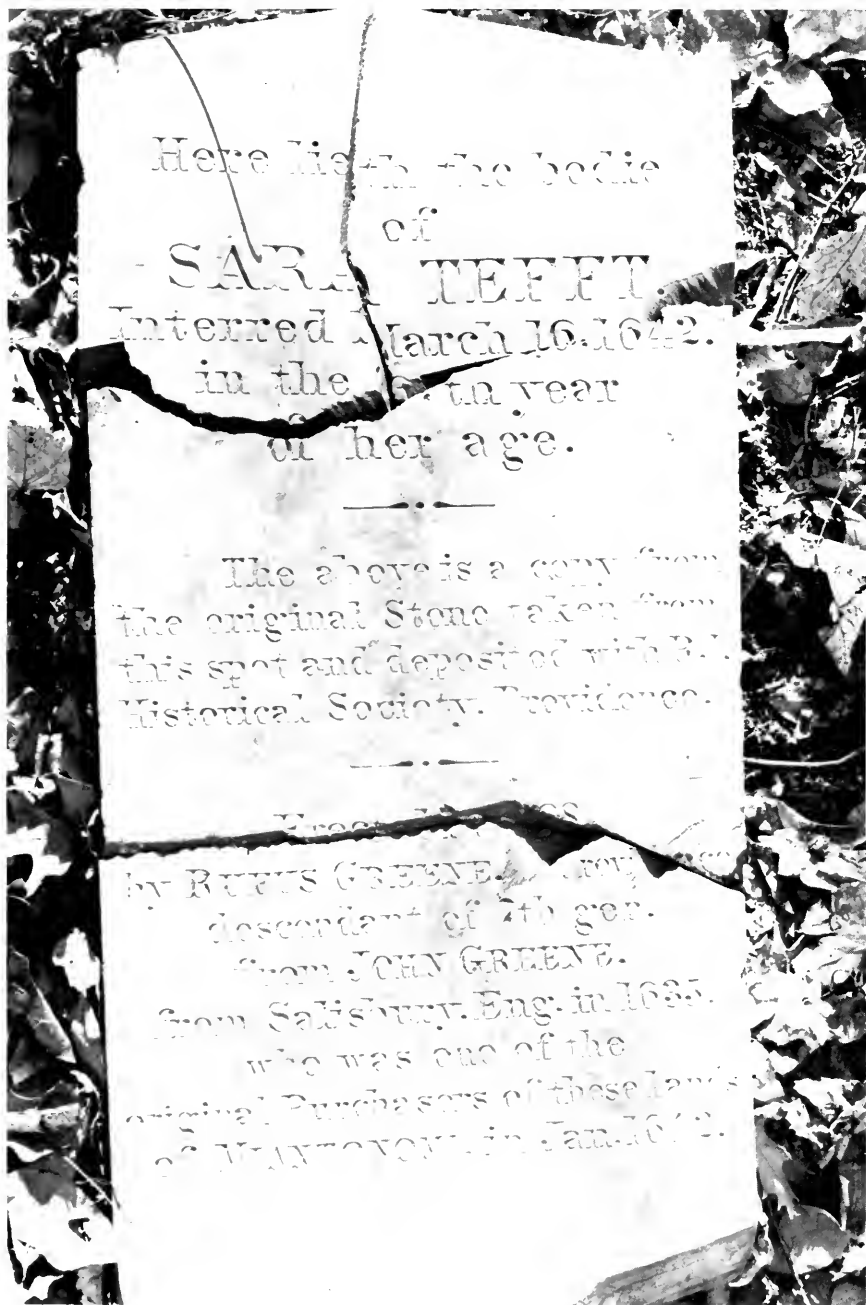 Here lieth the bodie
of
SARA TEFFT.
Interred March 16. 1642.
in the 6 th year
of her age.
The above is a copy from
the original Stone taken from
this spot and deposited with R.I.
Historical Society. Providence.
by RUFUS GREENE.
descendant of 7th gen.
from JOHN GREENE.
from Salisbury. Eng. in 1635.
who was one of the
original Purchasers of these lands
of in Jan. 1642.